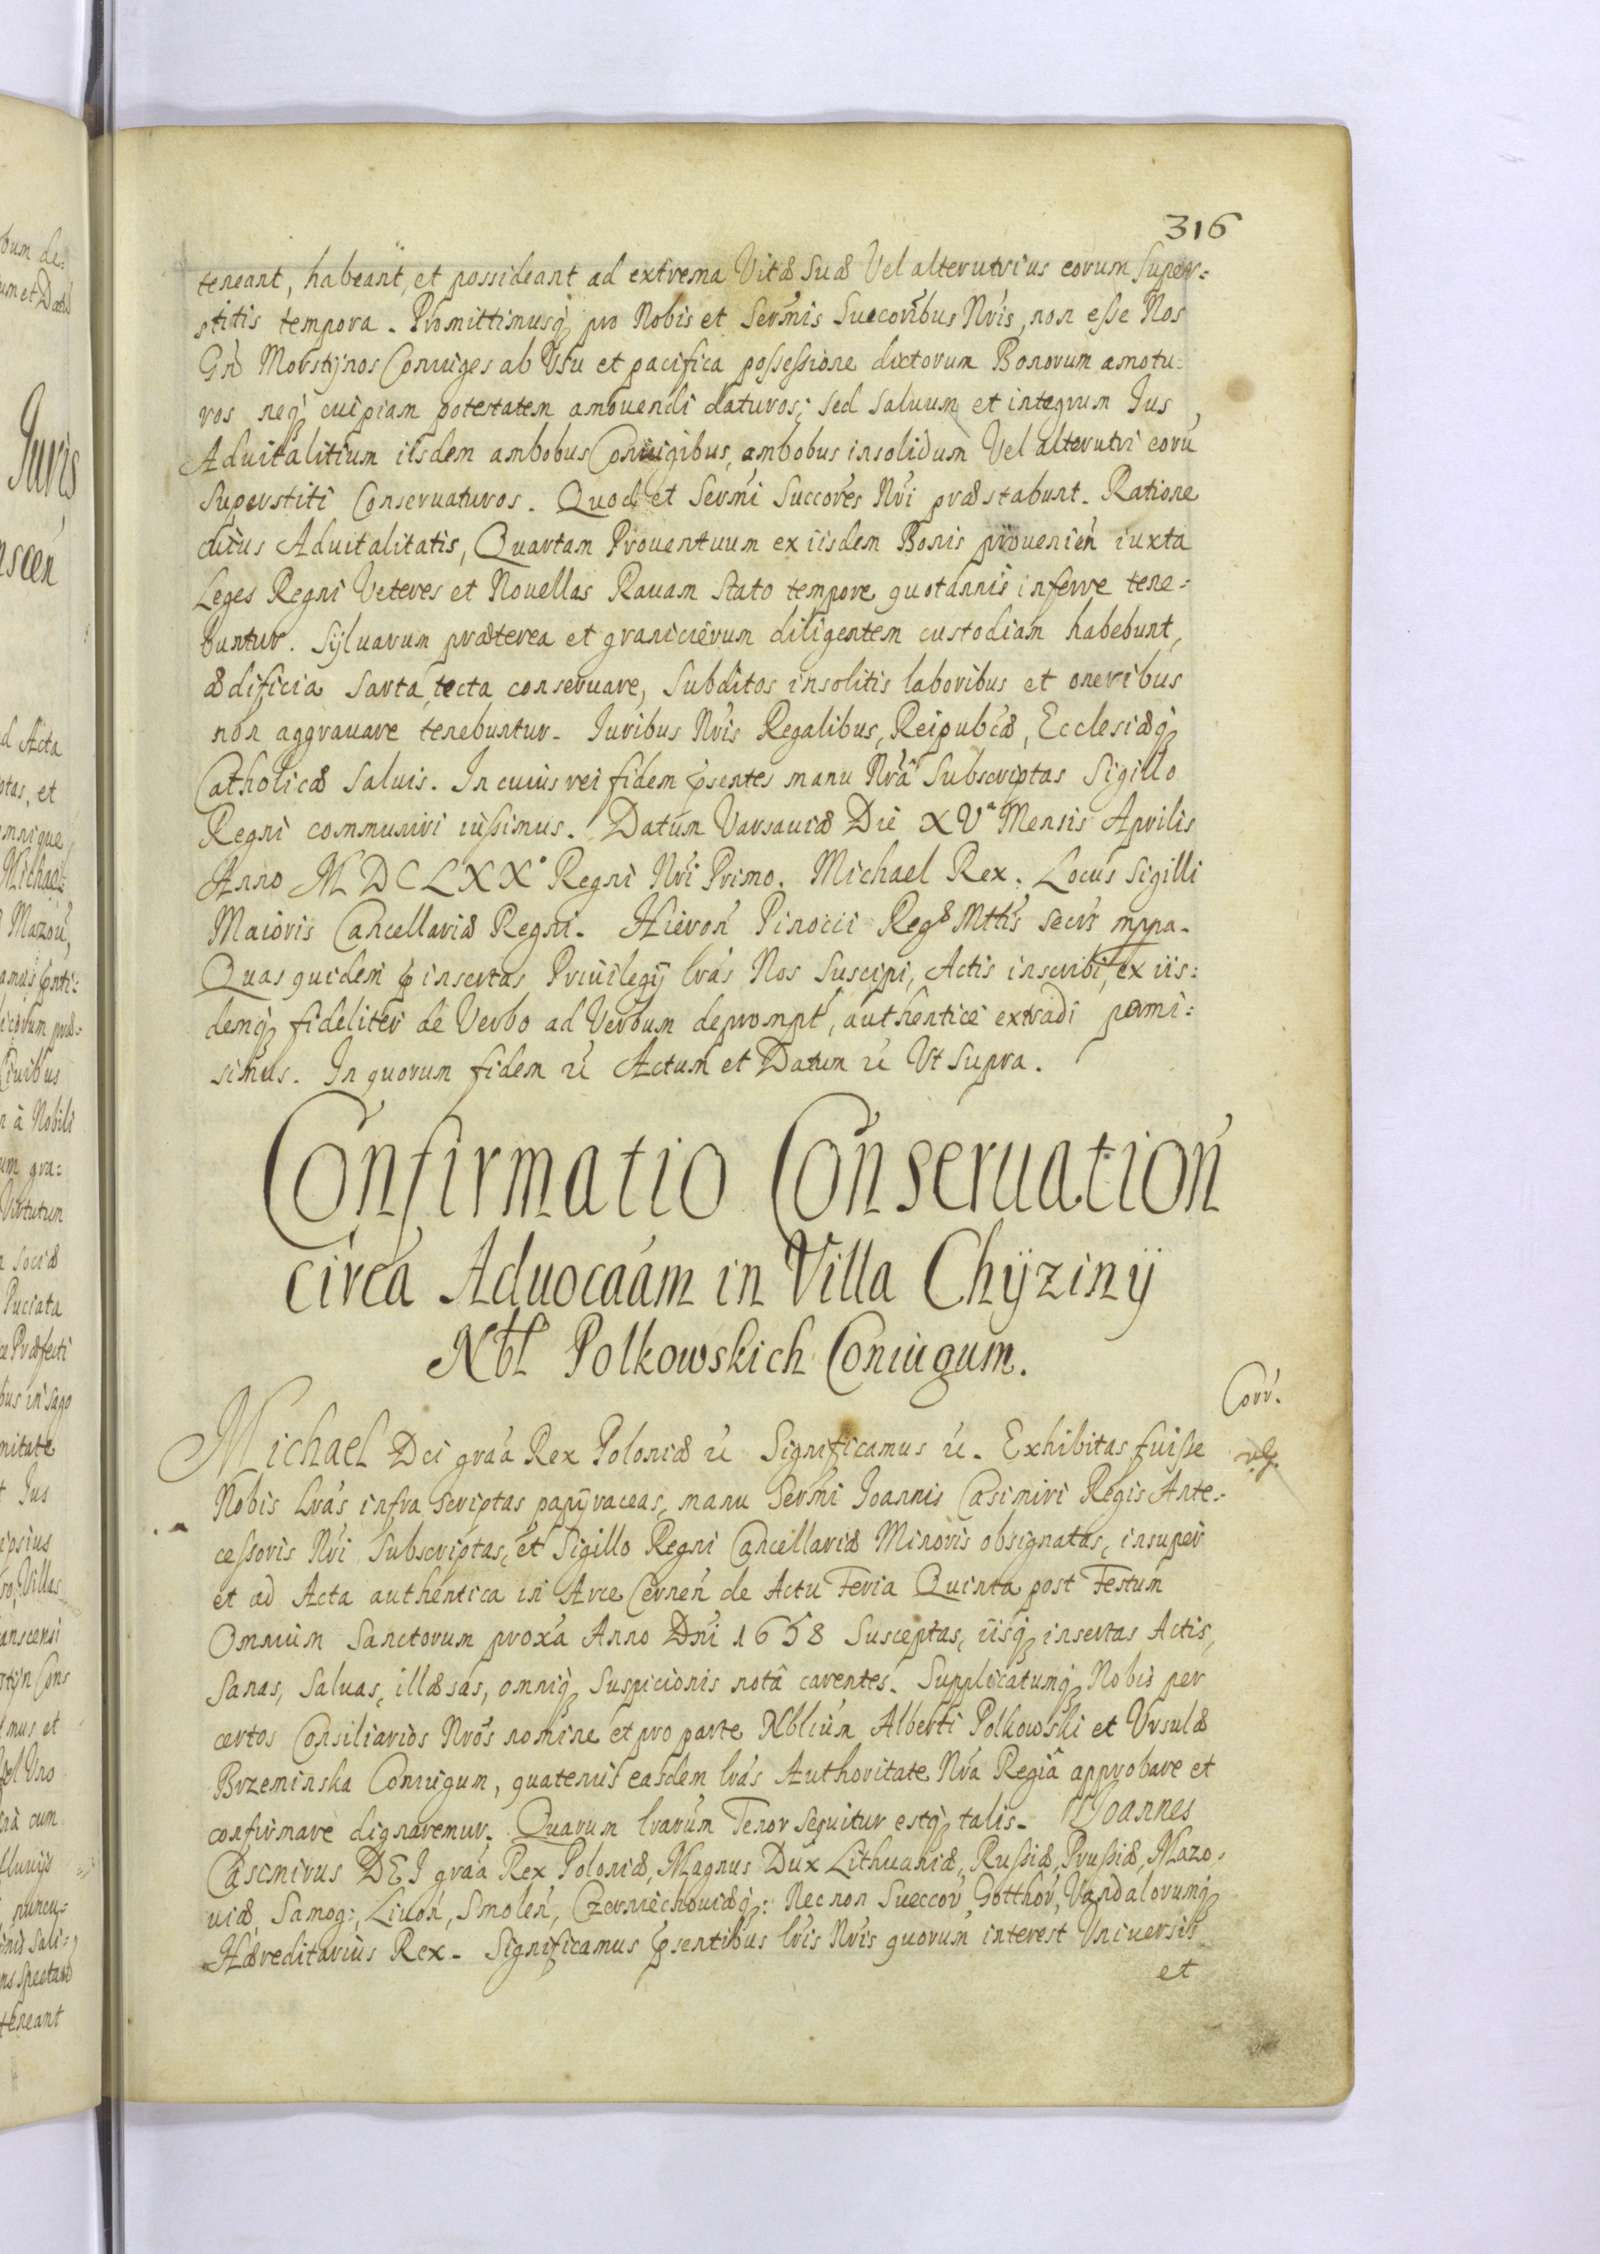 316
teneant, habeant, et possideant ad extrema Vitæ Suæ Vel alterutrius eorum Super-
stitis tempora. Promittimusq₃ pro Nobis et Sermis Succoribus Nris, non esse Nos
Gsd Morstynos Coniuges ab Usu et pacifica possessione dictorum Bonorum amotu-
ros neq₃ cuipiam potestatem amouendi daturos; sed saluum et integrum Ius
Aduitalitium iisdem ambobus Coniugibus, ambobus insolidum Vel alterutri eoru
Superstiti Conseruaturos. Quod et Sermi Succores Nri præstabunt. Ratione
cuius Aduitalitatis, Quartam Prouentuum ex iisdem Bonis prouenien iuxta
Leges Regni Veteres et Nouellas Rauam Stato tempore quotannis inferre tene-
buntur. Syluarum præterea et granicierum diligentem custodiam habebunt,
ædificia Sarta, tecta conseruare, Subditos insolitis laboribus et oneribus
non aggrauare tenebuntur. Iuribus Nris Regalibus, Reipubcæ, Ecclesiæq₃
Catholicæ Saluis. In cuius rei fidem psentes manu Nra Subscriptas Sigillo
Regni communiri iussimus. Datum Varsauiæ Die XVa Mensis Aprilis
Anno MDCLXX° Regni Nri Primo. Michael Rex. Locus Sigilli
Maioris Cancellariæ Regni. Hieron Pinocci Regæ Mttis secrs mppa.
Quas quidem p insertas Priuilegij lras Nos Suscipi, Actis inscribi, ex iis-
demq₃ fideliter de Verbo ad Verbum deprompt, authentice extradi permi-
simus. In quorum fidem &c Actum et Datum &c Ut Supra.
Confirmatio Conseruation
circa Aduocaam in Villa Chyziny
Nbl Polkowskich Coniugum.
Corr.
Michael Dei graa Rex Poloniæ &c Significamus &c. Exhibitas fuisse
Nobis Lras infra Scriptas papyraceas, manu Sermi Joannis Casimiri Regis Ante-
cessoris Nri Subscriptas, et Sigillo Regni Cancellariæ Minoris obsignatas, insuper
et ad Acta authentica in Arce Cernen de Actu Feria Quinta post Festum
Omnium Sanctorum proxa Anno Dni 1658 Susceptas, iisq₃ insertas Actis,
Sanas, Saluas, illæsas, omniq₃ Suspicionis notâ carentes. Supplicatumq₃ Nobis per
certos Consiliarios Nros nomine et pro parte Nblium Alberti Polkowski et Vrsulæ
Brzeminska Coniugum, quatenus easdem lras Authoritate Nra Regiâ approbare et
confirmare dignaremur. Quarum lrarum Tenor sequitur estq₃ talis. Joannes
Casimirus DEI graa Rex Poloniæ, Magnus Dux Lithuaniæ, Russiæ, Prussiæ, Mazo-
uiæ, Samog:, Liuon, Smolen, Czerniechouiæq₃: Nec non Sueccor, Gotthor, Vandalorumq₃
Hæreditarius Rex. Significamus psentibus lris Nris quorum interest Vniuersis
et